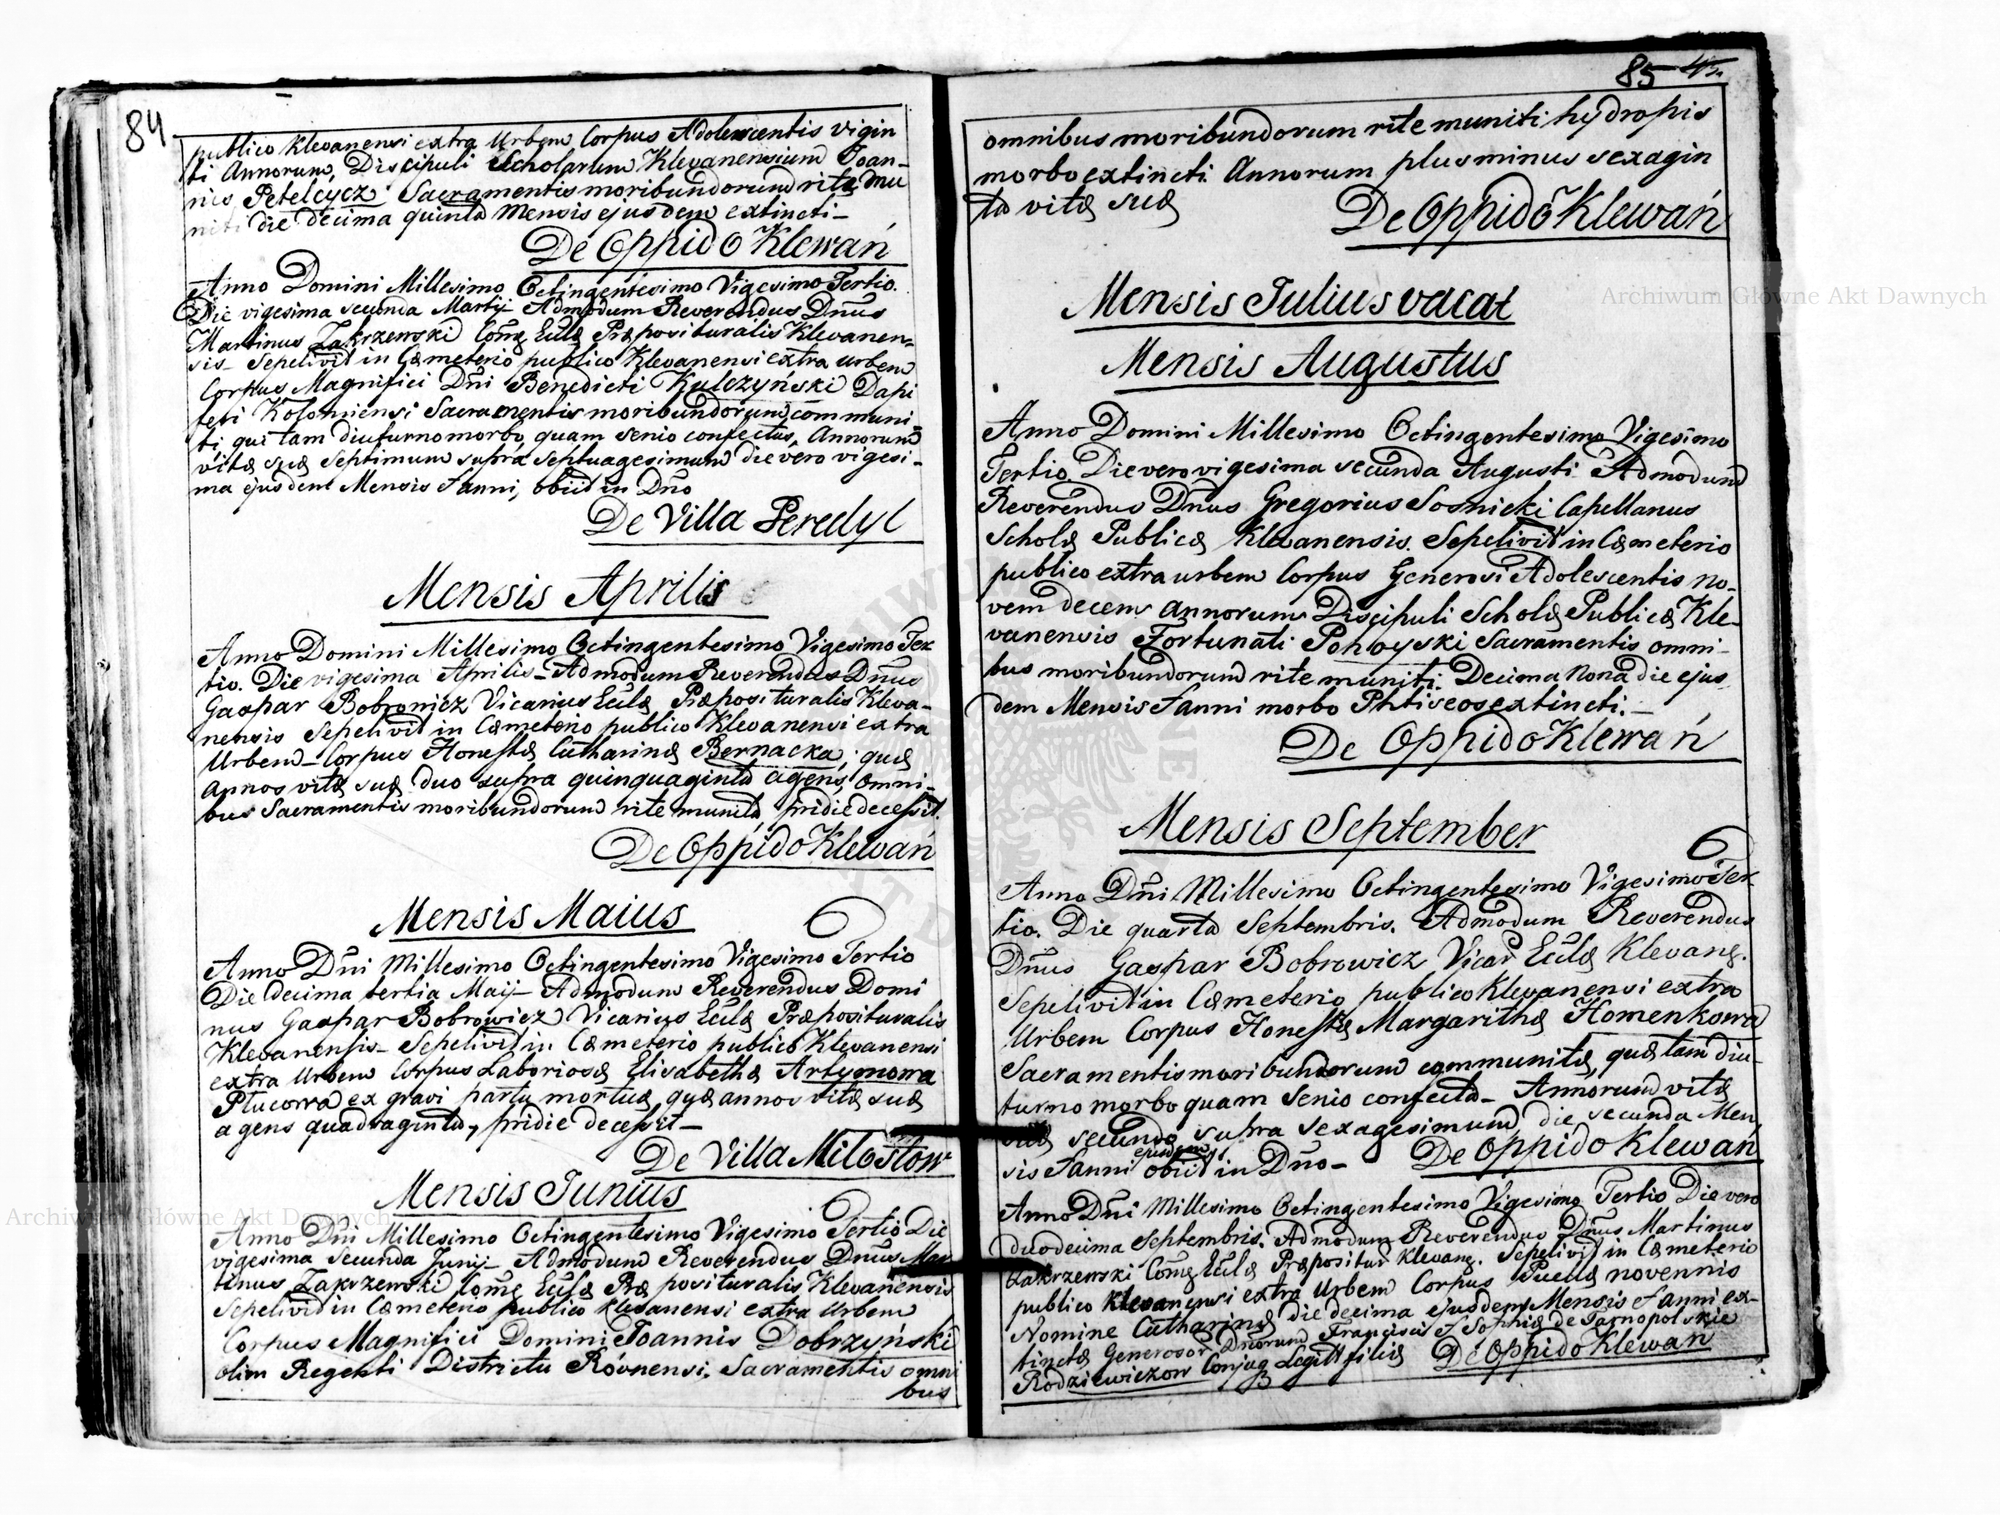 84
publico Klevanensi extra Urbem Corpus Adolescentis vigin
ti Annorum, Discipuli Scholarum Klevanensium Joan–
nis Petelcycz Sacramentis moribundorum rite mu
niti die decima quinta Mensis ejusdem extincti –
De Oppido Klewań
Anno Domini Millesimo Octingentesimo Vigesimo Tertio.
Die vigesima secunda Martij Admodum Reverendus Dnus
Martinus Zakrzewski Comg Eccla Præposituralis Klevanen–
sis – Sepelivit in Cæmeterio publico Klevanensi extra urbem
Corpus Magnifici Dni Benedicti Kulczyński Dapi
feri Kolomiensi Sacramentis moribundorum communi
ti qui tam diuturno morbo, quam senio confectus, Annorum
vitæ suæ Septimum supra septuagesimum die vero vigesi–
ma ejusdem Mensis & anni, obiit in Dno
De Villa Peredyl
Mensis Aprilis
Anno Domini Millesimo Octingentesimo Vigesimo Ter
tio. Die vigesima Aprilis – Admodum Reverendus Dnus
Gaspar Bobrowicz Vicarius Eclæ Præposituralis Kleva–
nensis Sepelivit in Cæmeterio publico Klevanensi extra
Urbem – Corpus Honestæ Catharinæ Bernacka, quæ
Annos vitæ suæ duo supra quinquaginta agens, omni–
bus Sacramentis moribundorum rite munita, pridie decessit.
De Oppido Klewań
Mensis Maius
Anno Dni Millesimo Octingentesimo Vigesimo Tertio
Die decima tertia Maij – Admodum Reverendus Domi
nus Gaspar Bobrowicz Vicarius Eclæ Præposituralis
Klevanensis – Sepelivit in Cæmeterio publico Klevanensi
extra Urbem Corpus Laboriosæ Elisabethæ Artymowa
Ptucowa ex gravi partu mortuæ, quæ annos vitæ suæ
agens quadraginta, pridie decessit –
De Villa Milostow
Mensis Junius
Anno Dni Millesimo Octingentesimo Vigesimo Tertio Die
vigesima secunda Junij – Admodum Reverendus Dnus Mar
tinus Zakrzewski Comg Eclæ Præposituralis Klevanensis
Sepelivit in Cæmeterio publico Klevanensi extra Urbem
Corpus Magnifici Domini Joannis Dobrzyński
olim Regenti Districtu Rovnensi, Sacramentis omni
bus
85 45.
omnibus moribundorum rite muniti hydropis
morbo extincti Annorum plus minus sexagin
ta vitæ suæ
De Oppido Klewań
Mensis Julius vacat
Mensis Augustus
Anno Domini Millesimo Octingentesimo Vigesimo
Tertio. Die vero vigesima secunda Augusti Admodum
Reverendus Dnus Gregorius Sosnicki Capellanus
Scholæ Publicæ Klevanensis. Sepelivit in Cæmeterio
publico extra urbem Corpus Generosi Adolescentis no–
vem decem annorum Discipuli Scholæ Publicæ Kle–
vanensis Fortunati Pohoyski Sacramentis omni–
bus moribundorum rite muniti. Decima Nona die ejus
dem Mensis & anni morbo Phtiseos extincti. –
De Oppido Klewań
Mensis September
Anno Dni Millesimo Octingentesimo Vigesimo Ter
tio. Die quarta Septembris. Admodum Reverendus
Dnus Gaspar Bobrowicz Vicar Eclæ Klevang.
Sepelivit in Cæmeterio publico Klevanensi extra
Urbem Corpus Honestæ Margarithæ Homenkowa
Sacramentis moribundorum communitæ, quæ tam diu–
turno morbo quam senio confecta – Annorum vitæ
suæ secundo supra sexagesimum, die secunda Men
sis & anni ejusdem obiit in Dno –
De Oppido Klewań
Anno Dni Millesimo Octingentesimo Vigesimo Tertio Die vero
duodecima Septembris. Admodum Reverendus Dnus Martinus
Zakrzewski Comg Eclæ Præpositur Klevang. Sepelivit in Cæmeterio
publico Klevanensi extra Urbem Corpus Puellæ novennis
Nomine Catharinæ die decima ejusdem Mensis & anni ex–
tinctæ Generosor Dnorum Francisci & Sophiæ de Tarnopolskie
Rodziewiczow Conjug Legitt filiæ De Oppido Klewań
Archiwum Główne Akt Dawnych
Archiwum Główne Akt Dawnych